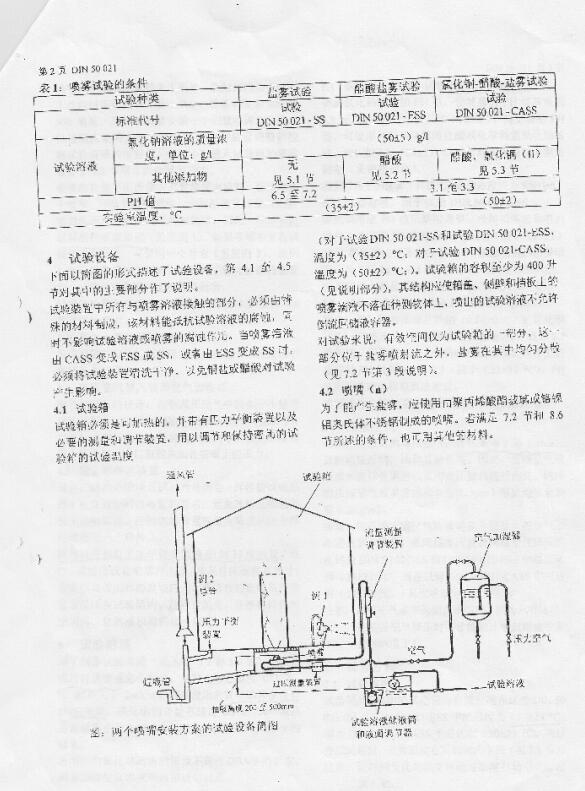 第 2 页 DIN 50 021
表 1: 喷雾试验的条件
试验种类 盐雾试验 醋酸盐雾试验 氯化铜-醋酸-盐雾试验
标准代号 试验 试验 试验
DIN 50 021 - SS DIN 50 021 - ESS DIN 50 021 - CASS
试验溶液 氯化钠溶液的质量浓度, 单位: g/l (50±5) g/l
其他添加物 无 醋酸 醋酸、氯化铜 (II)
见 5.1 节 见 5.2 节 见 5.3 节
PH 值 6.5 至 7.2 3.1 至 3.3
实验室温度, °C (35±2) (50±2)
4 试验设备
下面以简图的形式描述了试验设备, 第 4.1 至 4.5
节对其中的主要部分作了说明。
试验装置中所有与喷雾溶液接触的部分, 必须由特
殊的材料制成, 该材料能抵抗试验溶液的腐蚀, 同
时不影响试验溶液或喷雾的腐蚀作用。当喷雾溶液
由 CASS 变成 ESS 或 SS, 或者由 ESS 变成 SS 时,
必须将试验装置清洗干净, 以免铜盐或醋酸对试验
产生影响。
4.1 试验箱
试验箱必须是可加热的, 并带有压力平衡装置以及
必要的测量和调节装置, 用以调节和保持需要的试
验箱的试验温度
(对于试验 DIN 50 021-SS 和试验 DIN 50 021-ESS,
温度为 (35±2) °C; 对于试验 DIN 50 021-CASS,
温度为 (50±2) °C;)。试验箱的容积至少为 400 升
(见说明部分), 其结构应使箱盖、侧壁和挡板上的
喷雾液滴不落在待测物体上, 喷出的试验溶液不允许
倒流回储液容器。
对试验来说, 有效空间仅为试验箱的一部分, 这一
部分位于盐雾喷射流之外, 盐雾在其中均匀分散
(见 7.2 节第 3 段说明)。
4.2 喷嘴 (n)
为了能产生盐雾, 应使用由聚丙烯酸酯玻璃或铬镍
钼奥氏体不锈钢制成的喷嘴。若满足 7.2 节和 8.6
节所述的条件, 也可用其他的材料。
通风管
试验箱
流量测量
调节装置
空气加湿器
测 2
测 1
压力平衡
装置
喷嘴
空气
压力空气
虹吸管
过压测量装置
试验溶液
500mm
试验溶液储液筒
和液面调节器
图: 两个喷嘴安装方案的试验设备简图